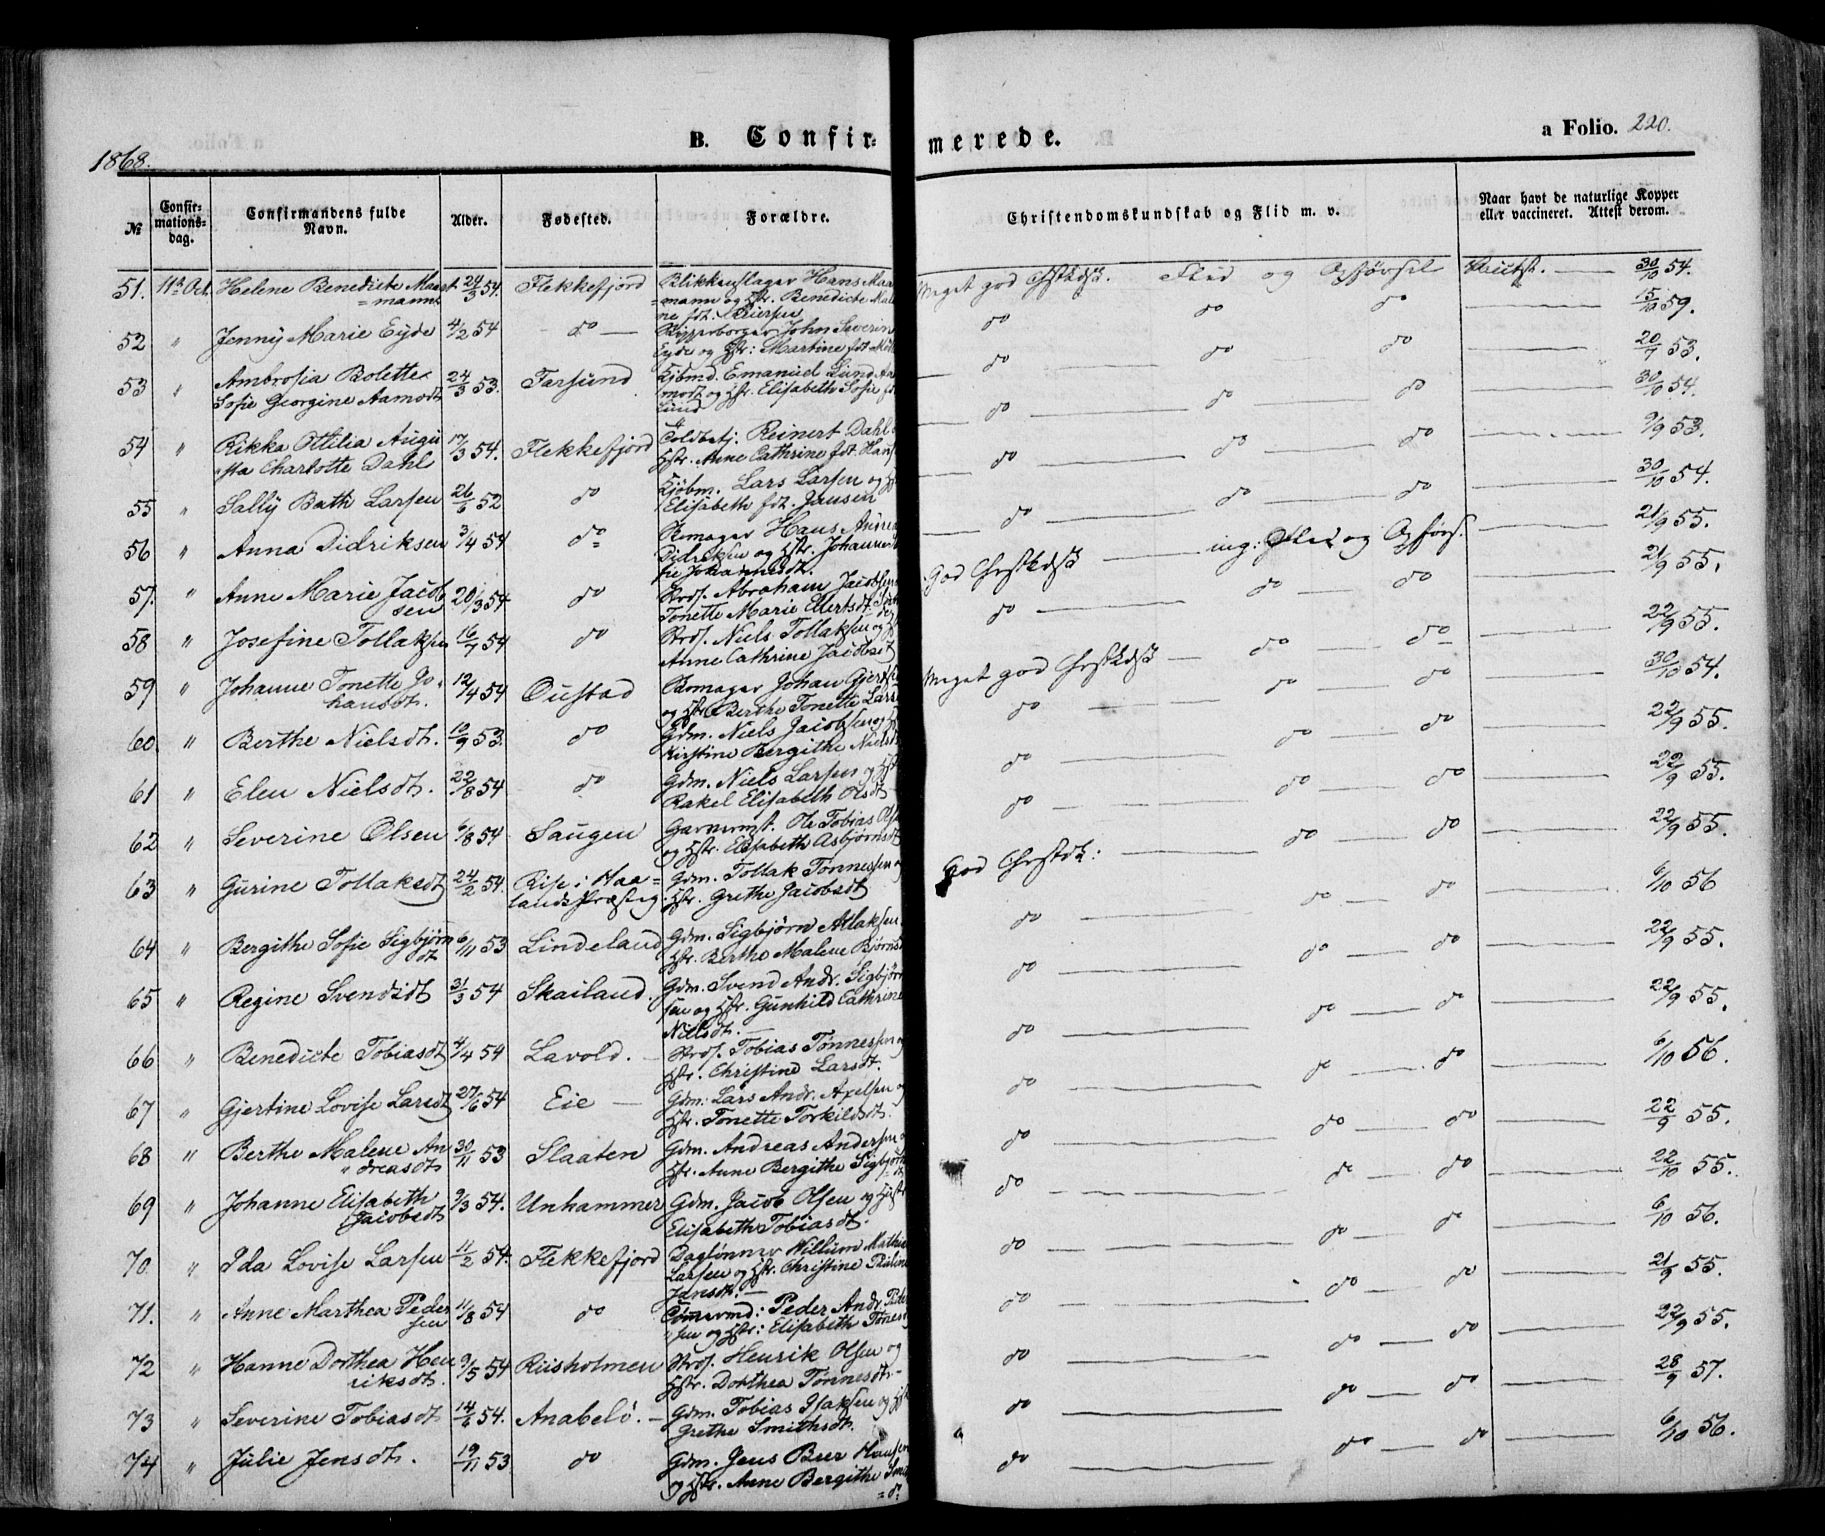 1868.
B. Confir-
merede.
a Folio. 220.
№
Confir-
mations-
dag.
Confirmandens fulde
Navn.
Alder.
Fødested.
Forældre.
Christendomskundskab og Flid m. v.
Naar havt de naturlige Kopper
eller vaccineret. Attest derom.
51. 11te Oct. Helene Benedicte 24/3 54. Flekkefjord Blikkenslager Hans
=mann og Hstr. Benedicte
Meget god Chrstkdsk. Flid og Opførsel 30/10 54.
52 " Jenny Marie Eyde 4/2 54 do John Severin
Eyde og Hstr: Martine fdt.
do do do 15/10 59.
53 " Ambrosia Bolette 24/3 53. Farsund Kjbmd. Emanuel Lund
Sofie Georgine Aamodt og Hstr. Elisabeth Sofie
Lund
do do do 20/7 53.
54 " Rikka Ottilia Augu 17/3 54. Flekkefjord Toldbetj. Reinert Dahl
sta Charlotte Dahl Hstr. Anne Cathrine fdt.
do do do 30/10 54.
55 " Sally Bath Larsen 26/6 52 do Kjøbm. Lars Larsen og
Elisabeth fdt. Jansen
do do do 9/9 53.
56 " Anna Didriksen 3/4 54 do Hans
Didriksen og Hstr.
do do do 30/10 54.
57. " Anne Marie Jacob 20/3 54 do Strds. Abraham Jacobsen
sen Tonette Marie
God Chrstkdsk Flid og Opførs. 21/9 55.
58 " Josefine Tollaksen 16/7 54 do Strds. Niels Tollaksen og
Anne Cathrine Jacobsdt
do do do 21/9 55.
59 " Johanne Tonette Jo- 12/4 54 Oustad Johan
hansdt. og Hstr. Berthe Tonette
Meget god Chrstkdsk do do 22/9 55.
60. " Berthe Nielsdt. 53. do Gdm. Niels Jacobsen og
Kirstine Bergithe
do do do 30/10 54.
61 " Elen Nielsdt. 22/8 54 do Gdm. Niels Larsen og
Rakel Elisabeth Olsdt
do do do 22/9 55.
62 " Severine Olsen 6/8 54 Ole Tobias
og Hstr. Elisabeth Asbjørnsdt
do do do 22/9 55.
63 " Gurine Tollaksdt 24/2 54. i Haa=
lands Præsteg Gdm. Tollak Tønnessen og
Hstr. Grethe Jacobsdt
God Chrstdk: do do 22/9 55.
64 " Bergithe Sofie Sigbjørn 6/11 53 Lindeland Gdm. Sigbjørn Atlaksen
dt Hstr. Berthe Malene
do do do 6/10 56
65 " Regine Svendsdt 31/3 54 Skailand. Gdm. Svend Andr. Sigbjørn
sen og Hstr. Gunhild Cathrine
Nielsdt.
do do do 22/9 55.
66 " Benedicte Tobiasdt 4/4 54 Lavold. Strds. Tobias Tønnessen og
Hstr. Christine Larsdt.
do do do 22/9 55.
67 " Gjertine Lovise Larsdt 27/6 54 Eie Gdm: Lars Andr. Axelsen og
Hstr. Tonette Torkildsdt.
do do do 6/10 56.
68 " Berthe Malene An 30/11 53 Slaaten Gdm. Andreas Andersen
" dreasdt Hstr. Anne Bergithe
do do do 22/9 55.
69 " Johanne Elisabeth 9/3 54. Unhammer Gdm. Jacob Olsen og Hstr
Jacobsdt Elisabeth Tobiasdt.
do do do 22/10 55.
70. " Ida Lovise Larsen 11/2 54. Flekkefjord Daglønner Willum
Larsen og Hstr. Christine
Jensdt.
do do do 6/10 56.
71. " Anne Marthea Peder 11/8 54 do Peder Andr.
sen sen og Hstr: Elisabeth
do do do 21/9 55.
72 " Hanne Dorthea Hen 9/5 54 Riisholmen Strds. Henrik Olsen og
riksdt. Hstr. Dorthea Tønnesdt.
do do do 22/9 55.
73 " Severine Tobiasdt 14/6 54. Anabelø. Gdm. Tobias Isaksen og
Grethe Smithsdt.
do do do 28/9 57.
74 " Julie Jensdt. 19/11 53 do Gdm. Jens Beer Hansen
og Hstr. Anne Bergithe
do do do 6/10 56.